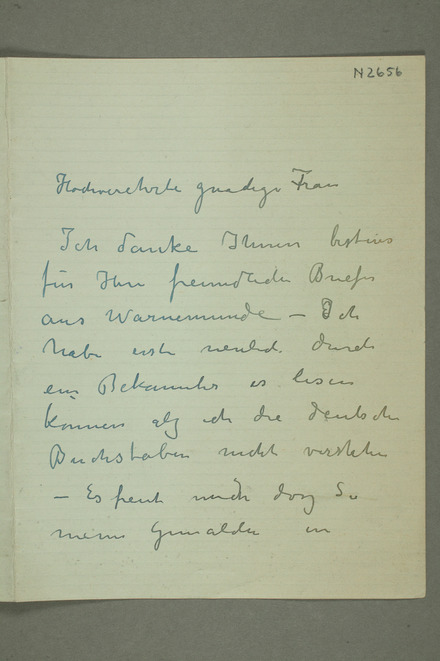 N2656
Hochverehrte gnadige Frau
Ich danke Ihnen bestens
für Ihre freundliche Briefe
aus Warnemunde – Ich
habe erst neulich durch
ein Bekannter es lesen
können als ich die deutsche
Buchstaben nicht verstehe
– Es freut mich dass Sie
meine Gemalde in